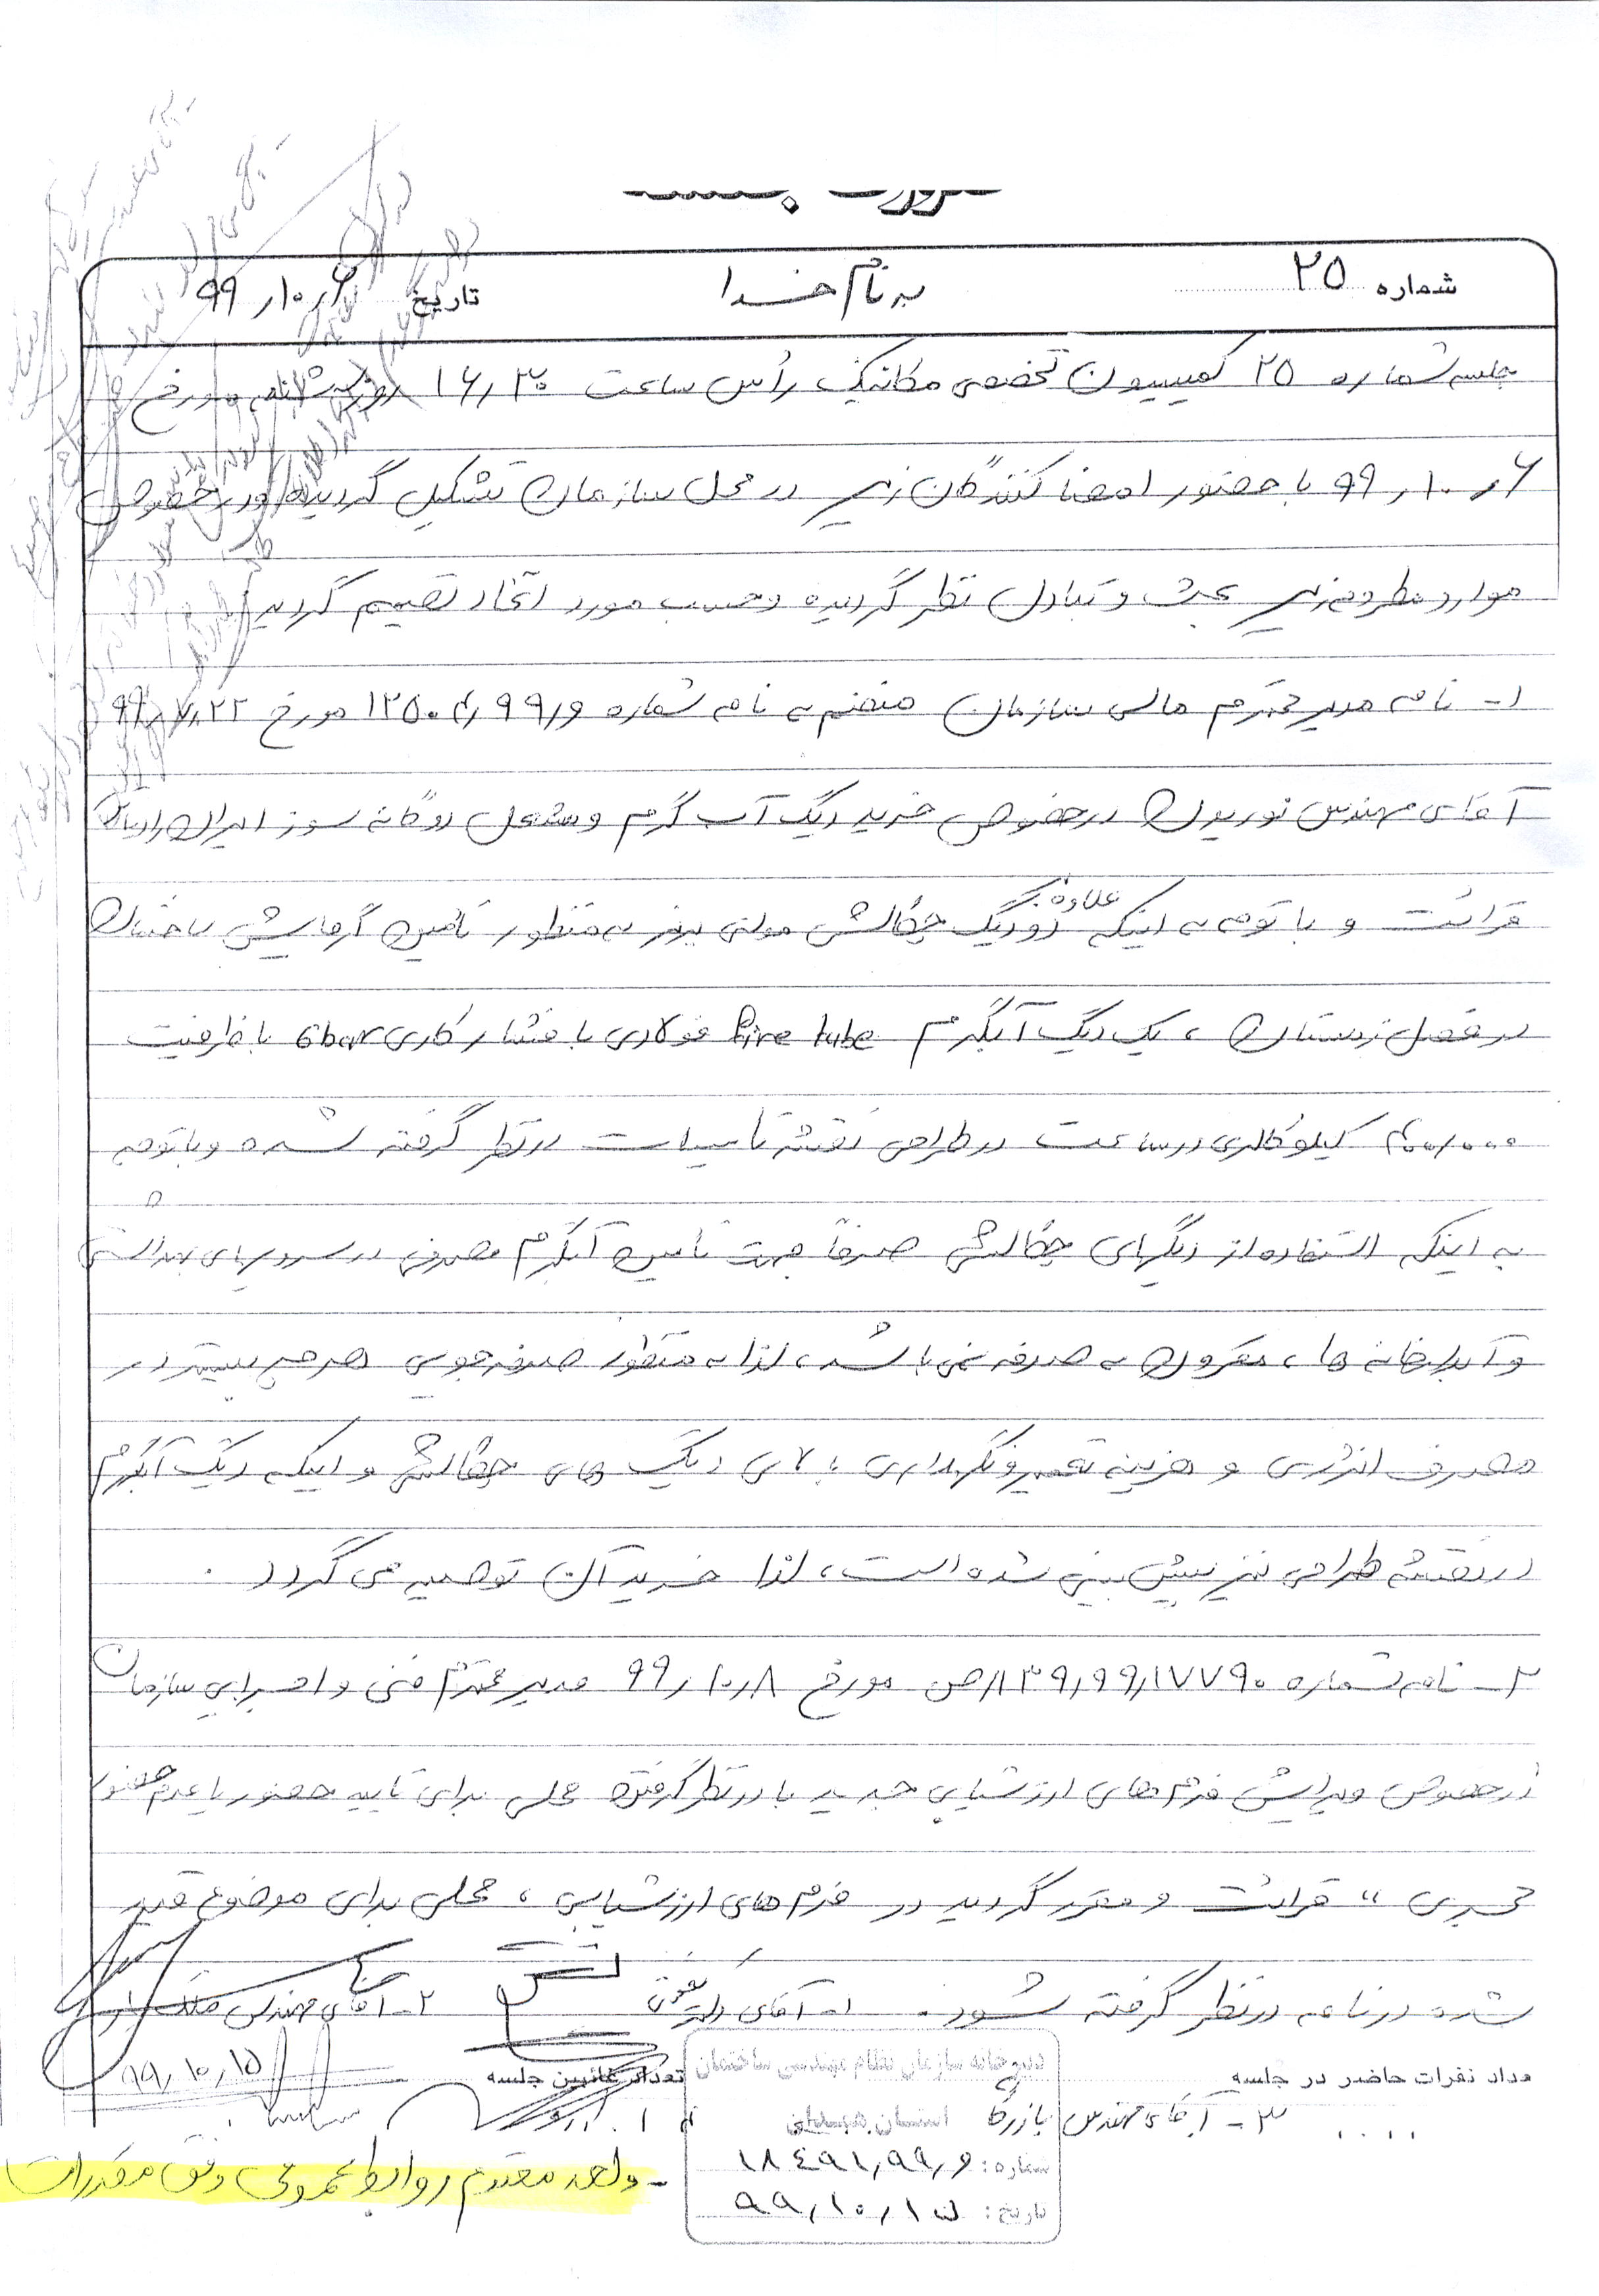 صورت جلسه
شماره ۲۵
به نام خدا
تاریخ ۹۹/۱۰/۶
جلسه شماره ۲۵ کمیسیون تخصصی مکانیک رأس ساعت ۱۶/۳۰ روز شنبه مورخ
۹۹/۱۰/۶ با حضور امضا کنندگان زیر در محل سازمان تشکیل گردید و در خصوص
موارد مطروحه زیر بحث و تبادل نظر گردیده و حسب مورد اتخاذ تصمیم گردید
۱- نامه مدیر محترم مالی سازمان منضم به نامه شماره ۱۲۵۰۴/۹۹/و مورخ ۹۹/۷/۲۲
آقای مهندس نوریون در خصوص خرید دیگ آب گرم و مشعل دوگانه سوز ایران رادیاتور
قرائت و با توجه به اینکه علاوه بر دو دیگ چگالشی مولتی پرفر به منظور تامین گرمایش ساختمان
در فصل زمستان ، یک دیگ آبگرم fire tube فولادی با فشار کاری 6bar با ظرفیت
۴۰۰/۰۰۰ کیلوکالری در ساعت در طراحی نقشه تاسیسات در نظر گرفته شده و با توجه
به اینکه استفاده از دیگهای چگالشی صرفا جهت تامین آبگرم مصرفی در سرویسهای بهداشتی
و آبدارخانه ها ، مقرون به صرفه نمی باشد ، لذا به منظور صرفه جویی هر چه بیشتر در
مصرف انرژی و هزینه تعمیر و نگهداری بالای دیگ های چگالشی و اینکه دیگ آبگرم
در نقشه طراحی نیز پیش بینی شده است ، لذا خرید آن توصیه می گردد .
۲- نامه شماره ۱۳۹/۹۹/۱۷۷۹۰/ص مورخ ۹۹/۱۰/۸ مدیر محترم فنی و اجرایی سازمان
در خصوص ویرایش فرم های ارزشیابی جدید با در نظر گرفتن محلی برای تایید حضور یا عدم حضور
مجری ،، قرائت و مقرر گردید در فرم های ارزشیابی ، محلی برای موضوع قید
شده در نامه در نظر گرفته شود . ۱- آقای ۲- آقای مهندس
تعداد نفرات حاضر در جلسه
تعداد غائبین جلسه
۹۹/۱۰/۱۵
۳- آقای مهندس بازرگان
دبیرخانه سازمان نظام مهندسی ساختمان
استان
شماره: ۱۸۴۹۱/۹۹/و
تاریخ: ۹۹/۱۰/۱۵
- واحد محترم روابط عمومی وفق مقررات